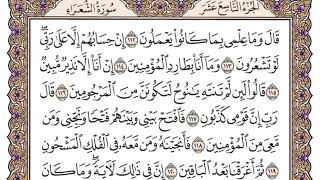 الجزء التاسع عشر
سورة الشعراء
قَالَ وَمَا عِلْمِى بِمَا كَانُوا۟ يَعْمَلُونَ ١١٢ إِنْ حِسَابُهُمْ إِلَّا عَلَىٰ رَبِّى
لَوْ تَشْعُرُونَ ١١٣ وَمَآ أَنَا۠ بِطَارِدِ ٱلْمُؤْمِنِينَ ١١٤ إِنْ أَنَا۠ إِلَّا نَذِيرٌ مُّبِينٌ
١١٥ قَالُوا۟ لَئِن لَّمْ تَنتَهِ يَٰنُوحُ لَتَكُونَنَّ مِنَ ٱلْمَرْجُومِينَ ١١٦ قَالَ
رَبِّ إِنَّ قَوْمِى كَذَّبُونِ ١١٧ فَٱفْتَحْ بَيْنِى وَبَيْنَهُمْ فَتْحًا وَنَجِّنِى وَمَن
مَّعِىَ مِنَ ٱلْمُؤْمِنِينَ ١١٨ فَأَنجَيْنَٰهُ وَمَن مَّعَهُۥ فِى ٱلْفُلْكِ ٱلْمَشْحُونِ
١١٩ ثُمَّ أَغْرَقْنَا بَعْدُ ٱلْبَاقِينَ ١٢٠ إِنَّ فِى ذَٰلِكَ لَءَايَةً وَمَا كَانَ